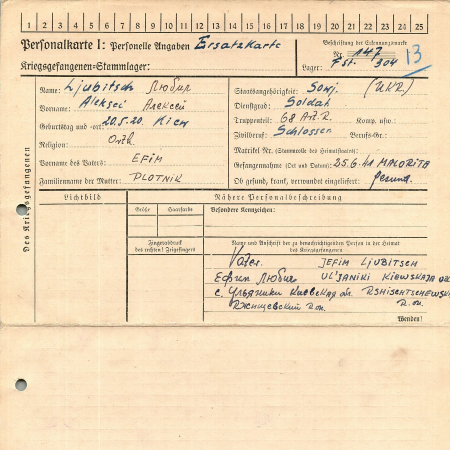 1 2 3 4 5 6 7 8 9 10 11 12 13 14 15 16 17 18 19 20 21 22 23 24 25
Personalkarte I: Personelle Angaben Ersatzkarte
Kriegsgefangenen-Stammlager:
Beschriftung der Erkennungsmarke
Nr. 147
Lager: Fst. 304
13
Des Kriegsgefangenen
Name: Ljubitsch Любич
Vorname: Aleksei Алексей
Geburtstag und -ort: 20.5.20. Kiew
Religion: Orth.
Vorname des Vaters: EFIM
Familienname der Mutter: PLOTNIK
Staatsangehörigkeit: Sowj. (UKR)
Dienstgrad: Soldat
Truppenteil: 68 Art. R. Komp. usw.:
Zivilberuf: Schlosser Berufs-Gr.:
Matrikel Nr. (Stammrolle des Heimatstaates):
Gefangennahme (Ort und Datum): 25.6.41 MALORITO
Ob gesund, krank, verwundet eingeliefert: gesund.
Lichtbild
Nähere Personalbeschreibung
Größe Haarfarbe Besondere Kennzeichen:
Fingerabdruck
des rechten! Zeigefingers
Name und Anschrift der zu benachrichtigenden Person in der Heimat
des Kriegsgefangenen:
Vater. JEFIM LJUBITSCH
Ефим Любич UL'JANIKI KIEWSKAJA OBL
с. Ульяники Киевская обл. RSHISCHTSCHEWSKI
Ржищевский R. on.
Wenden!